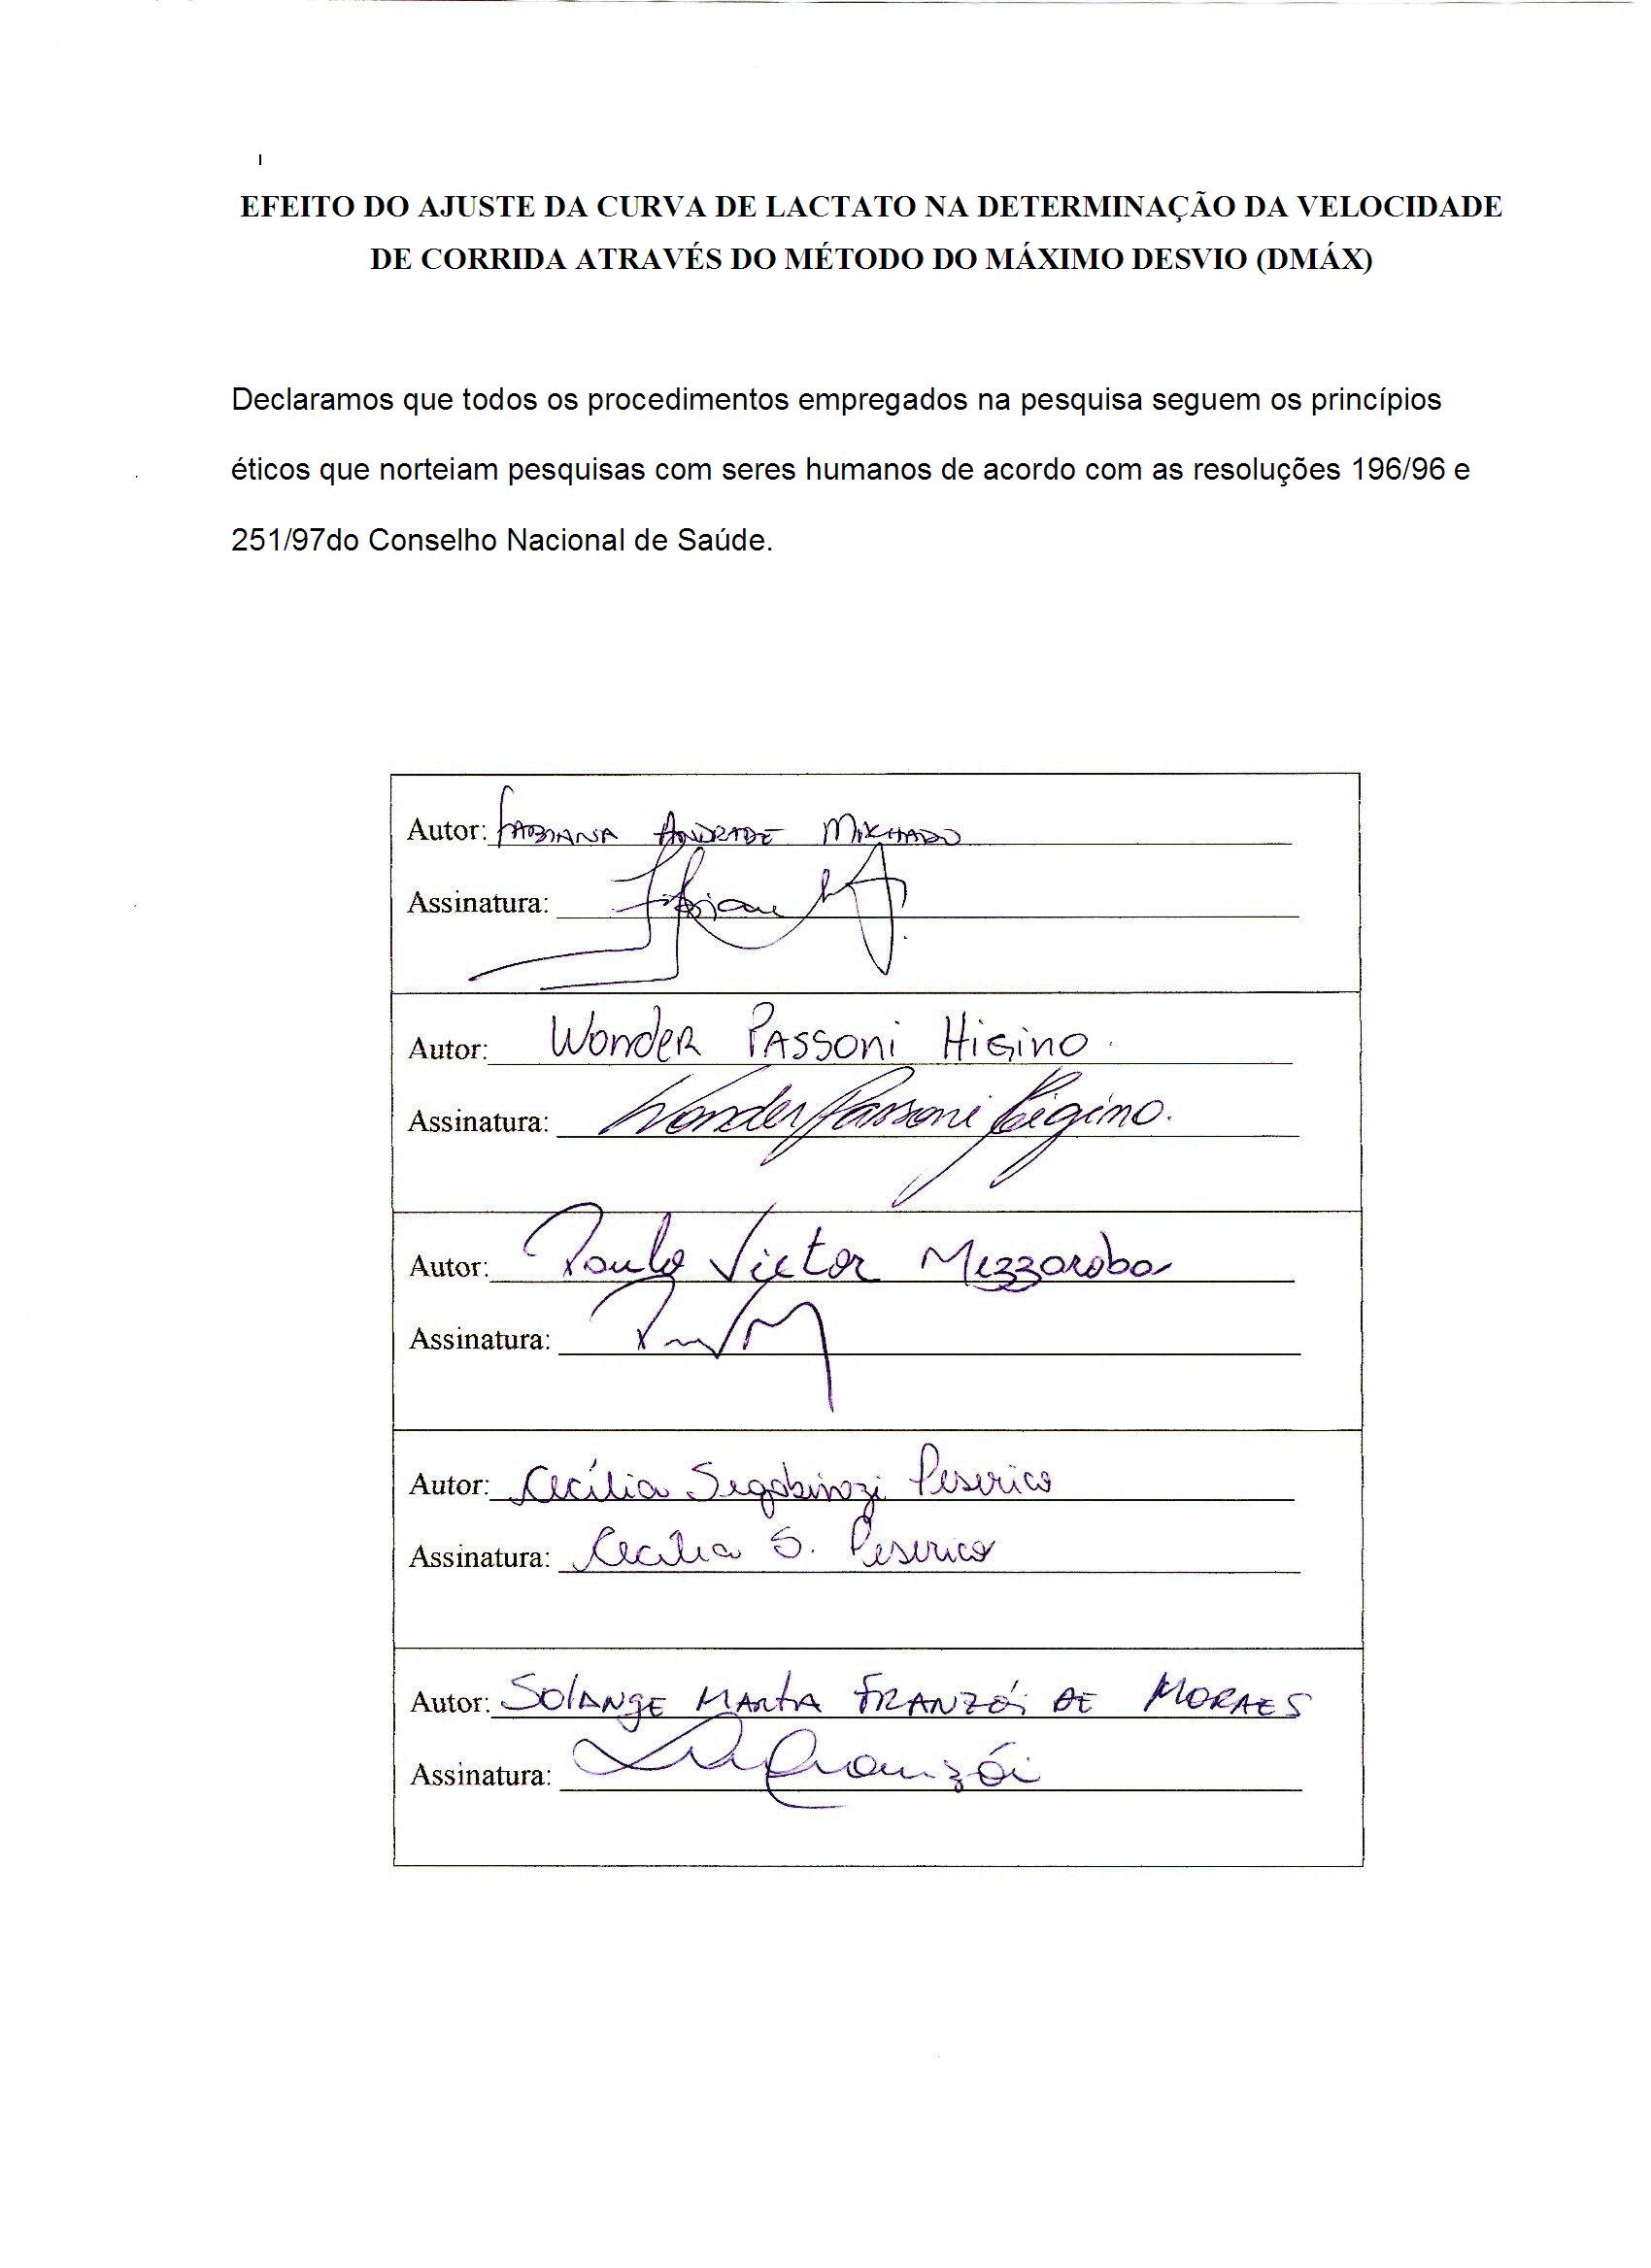 EFEITO DO AJUSTE DA CURVA DE LACTATO NA DETERMINAÇÃO DA VELOCIDADE
DE CORRIDA ATRAVÉS DO MÉTODO DO MÁXIMO DESVIO (DMÁX)
Declaramos que todos os procedimentos empregados na pesquisa seguem os princípios
éticos que norteiam pesquisas com seres humanos de acordo com as resoluções 196/96 e
251/97do Conselho Nacional de Saúde.
Autor: FABIANA ANDRADE MACHADO
Assinatura:
Autor: Wonder Passoni Higino.
Assinatura: Wonder Passoni Higino.
Autor: Paulo Victor Mezzaroba
Assinatura:
Autor: Cecília Segabinazi Peserico
Assinatura: Cecília S. Peserico
Autor: SOLANGE MARTA FRANZÓI DE MORAES
Assinatura: Franzói